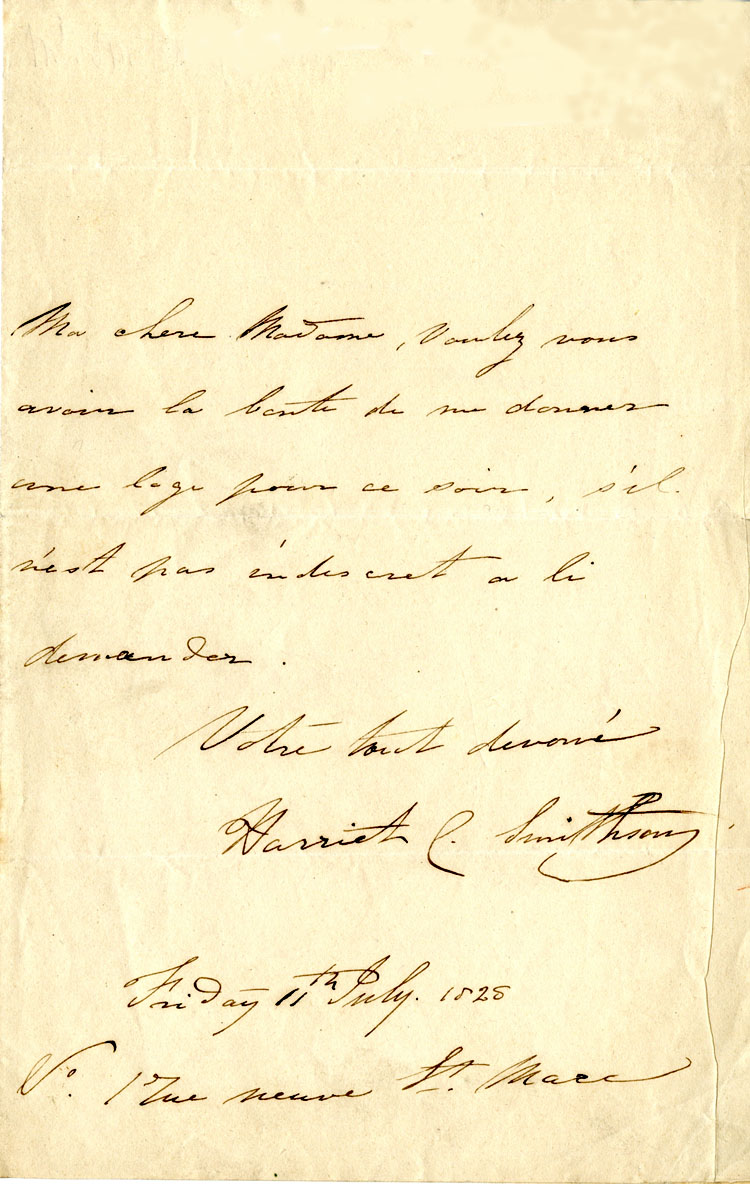 Ma chere Madame, Voulez vous
avoir la bonte de me donner
une loge pour ce soir, s'il
n'est pas indiscret a li
demander.
Votre tout devoué
Harriet C. Smithson
Friday 11th July. 1828
No. 1 rue neuve St. Marc